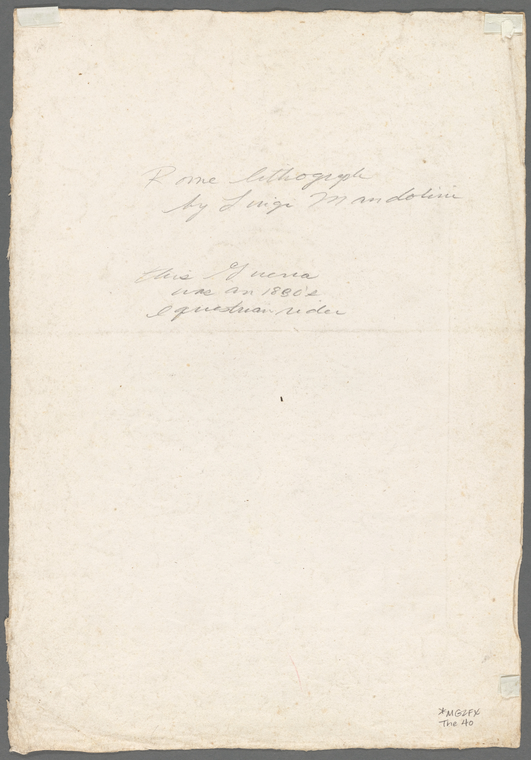 Rome lithograph
by Luigi Mandolini
this Guerra
was an 1880's
equestrian rider
*MGZFX
The 40